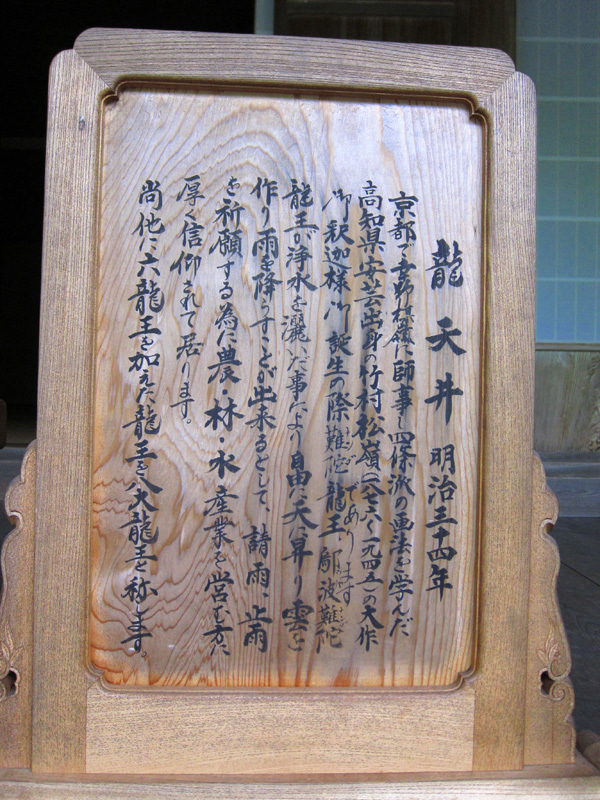 龍天井 明治三十四年
京都で吉野桜嶺に師事し四條派の画法を学んだ
高知県安芸出身の竹村松嶺(一八七六〜一九四五)の大作
であります
御釈迦様御誕生の際難陀龍王・䣝波難陀
龍王が浄水を灑いだ事により自由に天に昇り雲を
作り雨を降らすことが出来るとして、請雨、止雨
を祈願する為に農・林・水産業を営む方に
厚く信仰されて居ります。
尚他に六龍王を加えた龍王を八大龍王と称します。